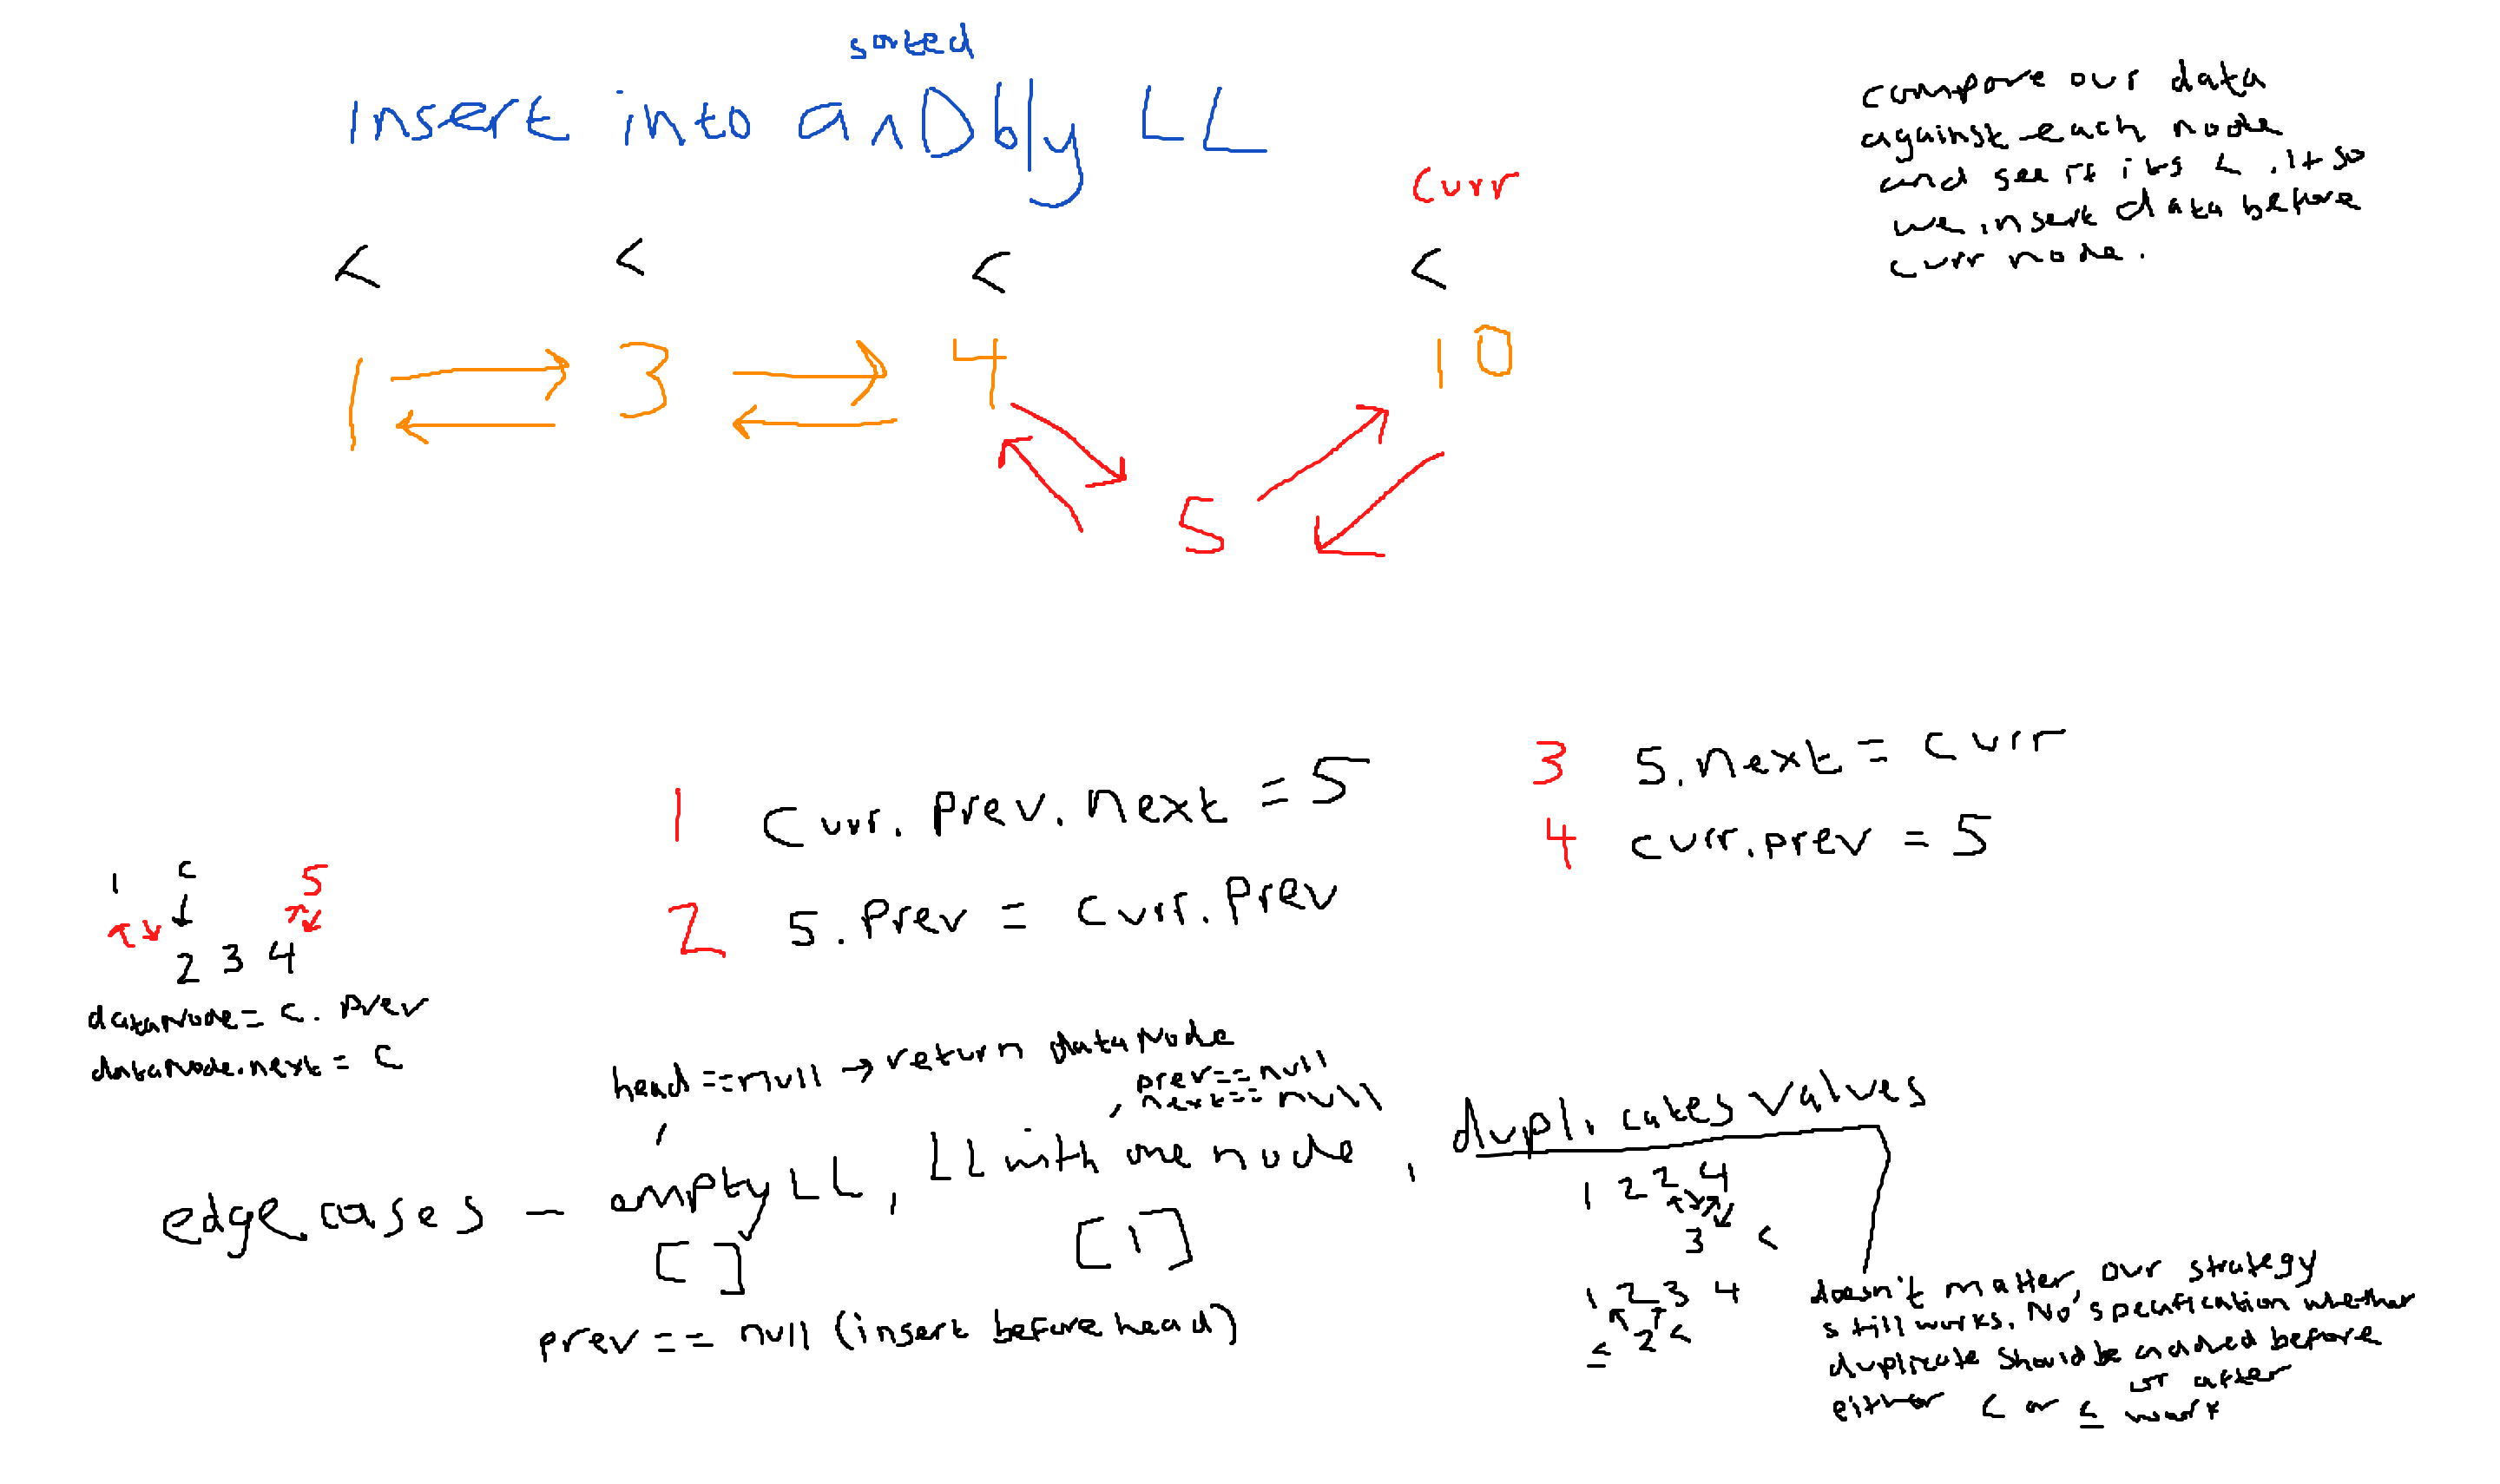 sorted
Insert into a Dbly LL
compare our data
against each node
and see if its < . if so
we insert data before
curr node.
curr
< < < <
1 3 4 10
5
1 curr.prev.next = 5
2 5.prev = curr.prev
3 5.next = curr
4 curr.prev = 5
1 c 5
2 3 4
datanode = c.prev
datanode.next = c
head == null → return dataNode
prev == null
, next == null
edge cases - empty LL, LL with one node, duplicates values
[ ] [1]
prev == null (insert before head)
1 2 2 4
3 <
1 2 3 4
≤ 2 <
doesnt matter, our strategy
still works. No specification whether
duplicate should be added before
or after
either < or ≤ work